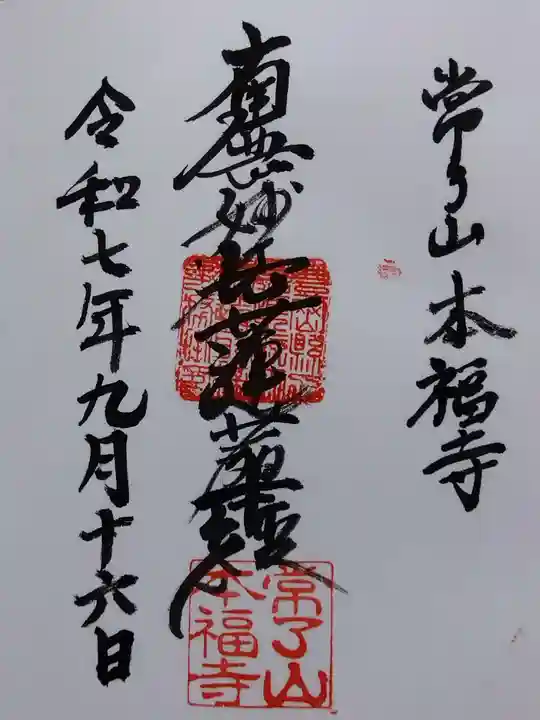 常了山本福寺
南無妙法蓮華経
令和七年九月十六日
常了山
本福寺